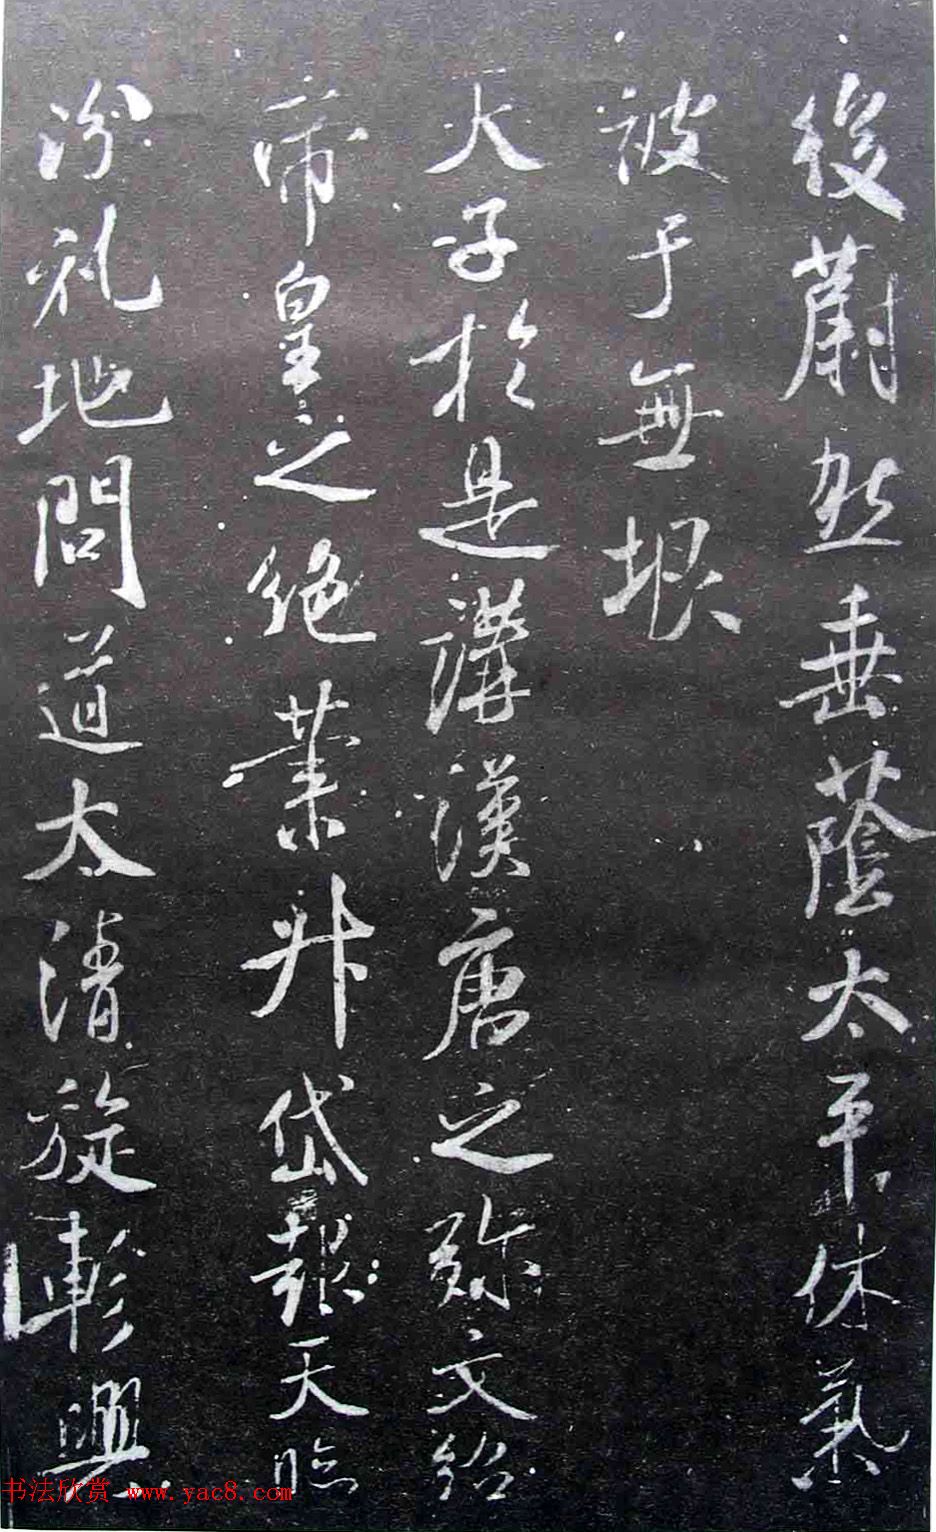 後蔚然垂蔭太平休氣
被于無垠
天子於是講漢唐之弥文紹
帝皇之絶業升岱報天臨
汾礼地問道太清旋軫興
书法欣赏 www.yac8.com